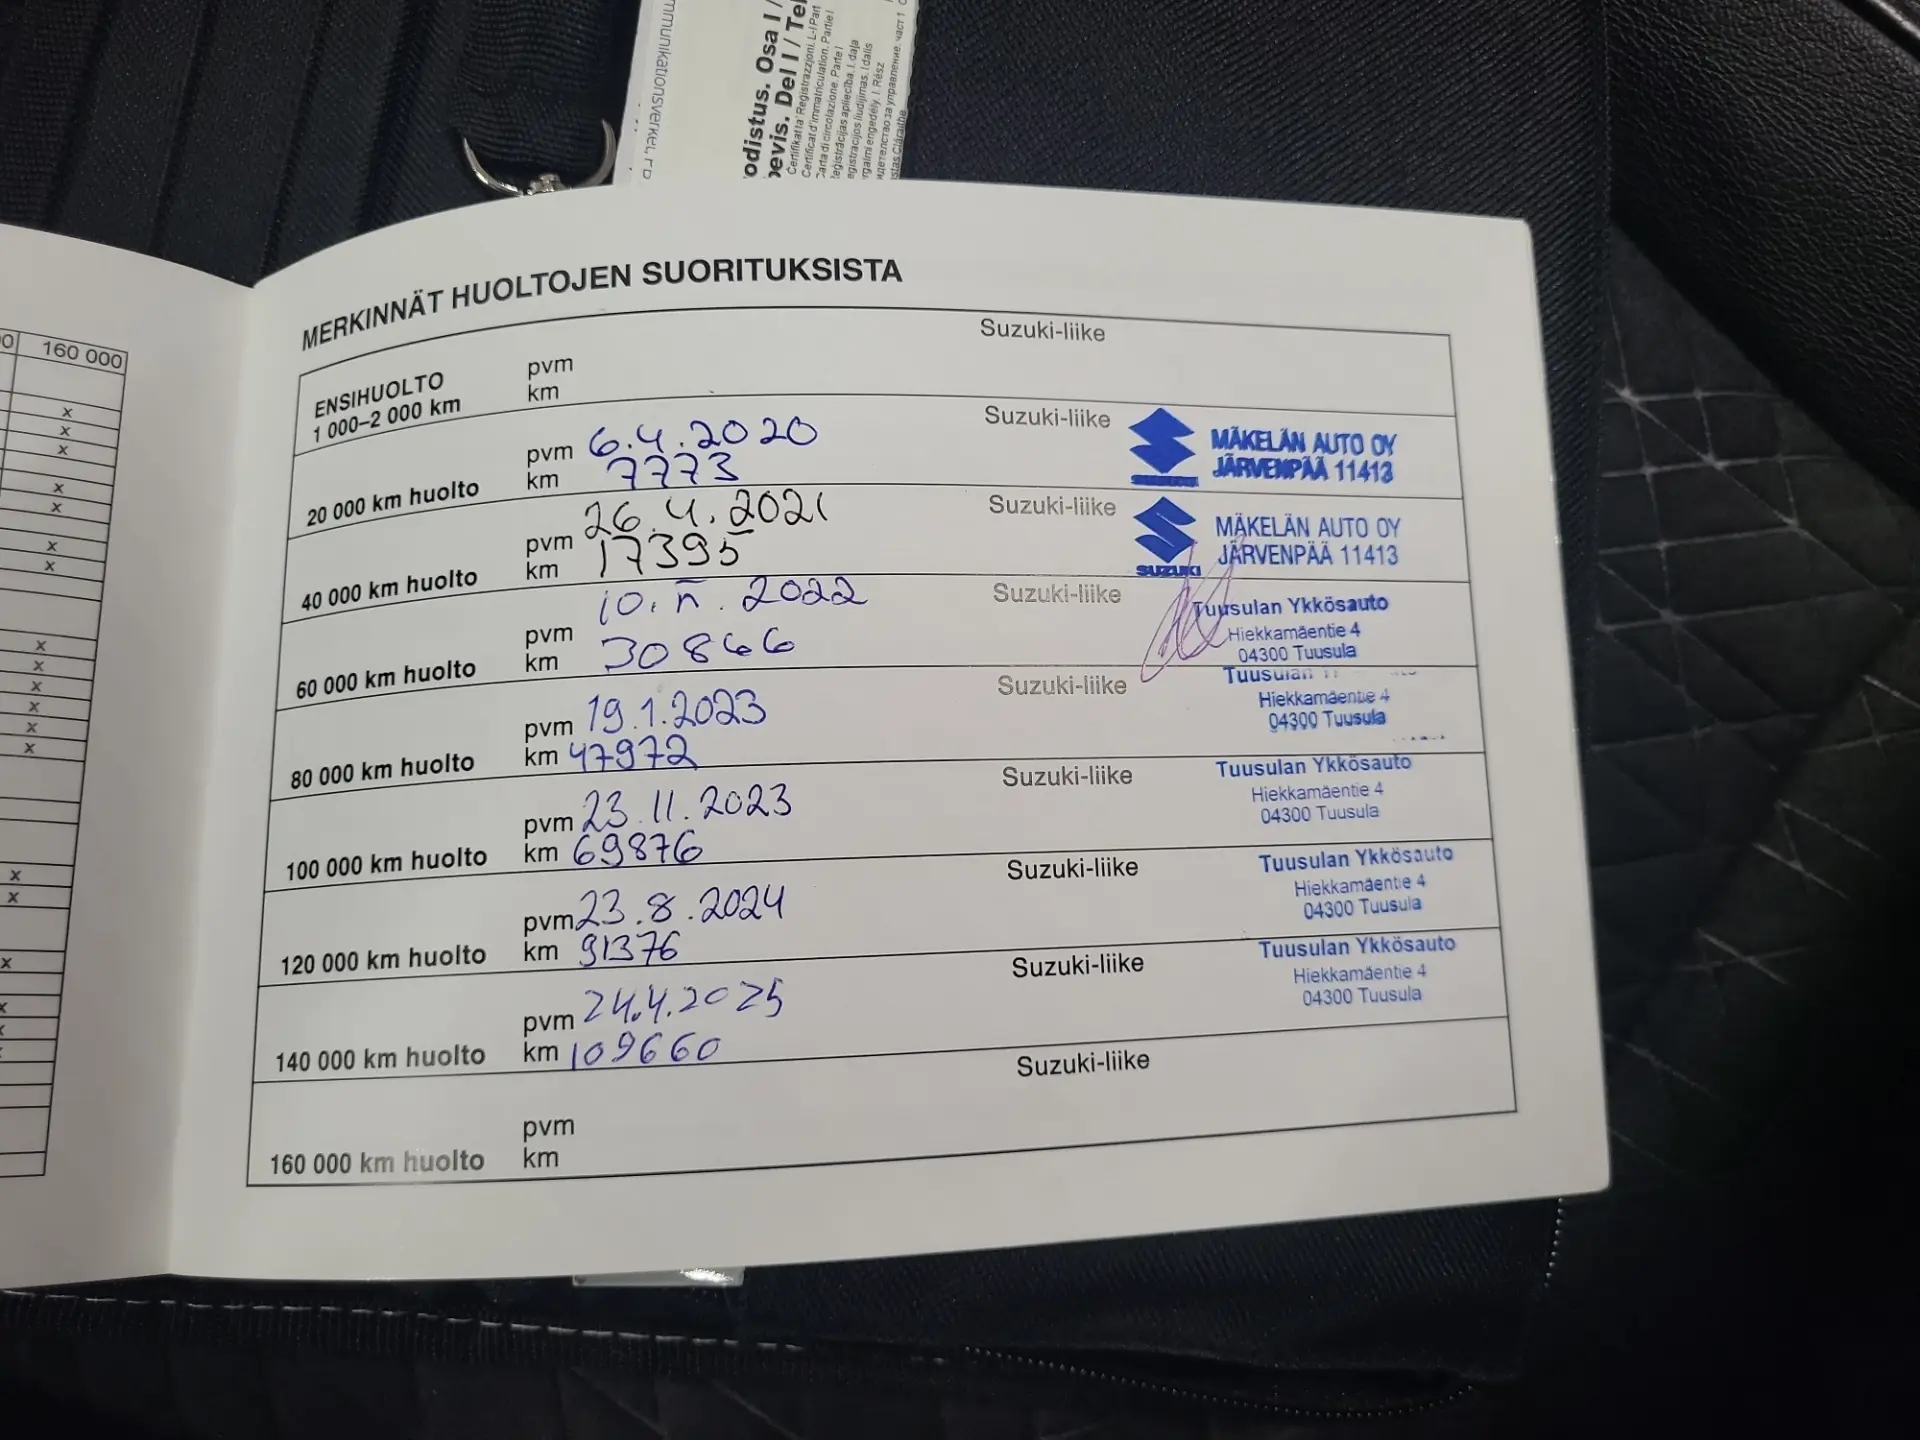 mmunikationsverket,
odistus. Osa I /
bevis. Del I / Tel
Ċertifikat ta' Reġistrazzjoni. L-I Part
Certificat d'immatriculation. Partie I
Carta di circolazione. Parte I
Reģistrācijas apliecība. I. daļa
egistracijos liudijimas. I dalis
rgalmi engedély. I. Rész
идетелство за управление. част 1
stas Cláraithe
160 000
x
x
x
x
x
x
x
x
x
x
x
x
x
x
x
x
MERKINNÄT HUOLTOJEN SUORITUKSISTA
ENSIHUOLTO
1 000–2 000 km
pvm
km
Suzuki-liike
20 000 km huolto
pvm 6.4.2020
km 7773
Suzuki-liike
SUZUKI
MÄKELÄN AUTO OY
JÄRVENPÄÄ 11413
40 000 km huolto
pvm 26.4.2021
km 17395
Suzuki-liike
SUZUKI
MÄKELÄN AUTO OY
JÄRVENPÄÄ 11413
60 000 km huolto
pvm 10. . 2022
km 30866
Suzuki-liike
Tuusulan Ykkösauto
Hiekkamäentie 4
04300 Tuusula
80 000 km huolto
pvm 19.1.2023
km 47972
Suzuki-liike
Tuusulan
Hiekkamäentie 4
04300 Tuusula
100 000 km huolto
pvm 23.11.2023
km 69876
Suzuki-liike
Tuusulan Ykkösauto
Hiekkamäentie 4
04300 Tuusula
120 000 km huolto
pvm 23.8.2024
km 91376
Suzuki-liike
Tuusulan Ykkösauto
Hiekkamäentie 4
04300 Tuusula
140 000 km huolto
pvm 24.4.2025
km 109660
Suzuki-liike
Tuusulan Ykkösauto
Hiekkamäentie 4
04300 Tuusula
160 000 km huolto
pvm
km
Suzuki-liike